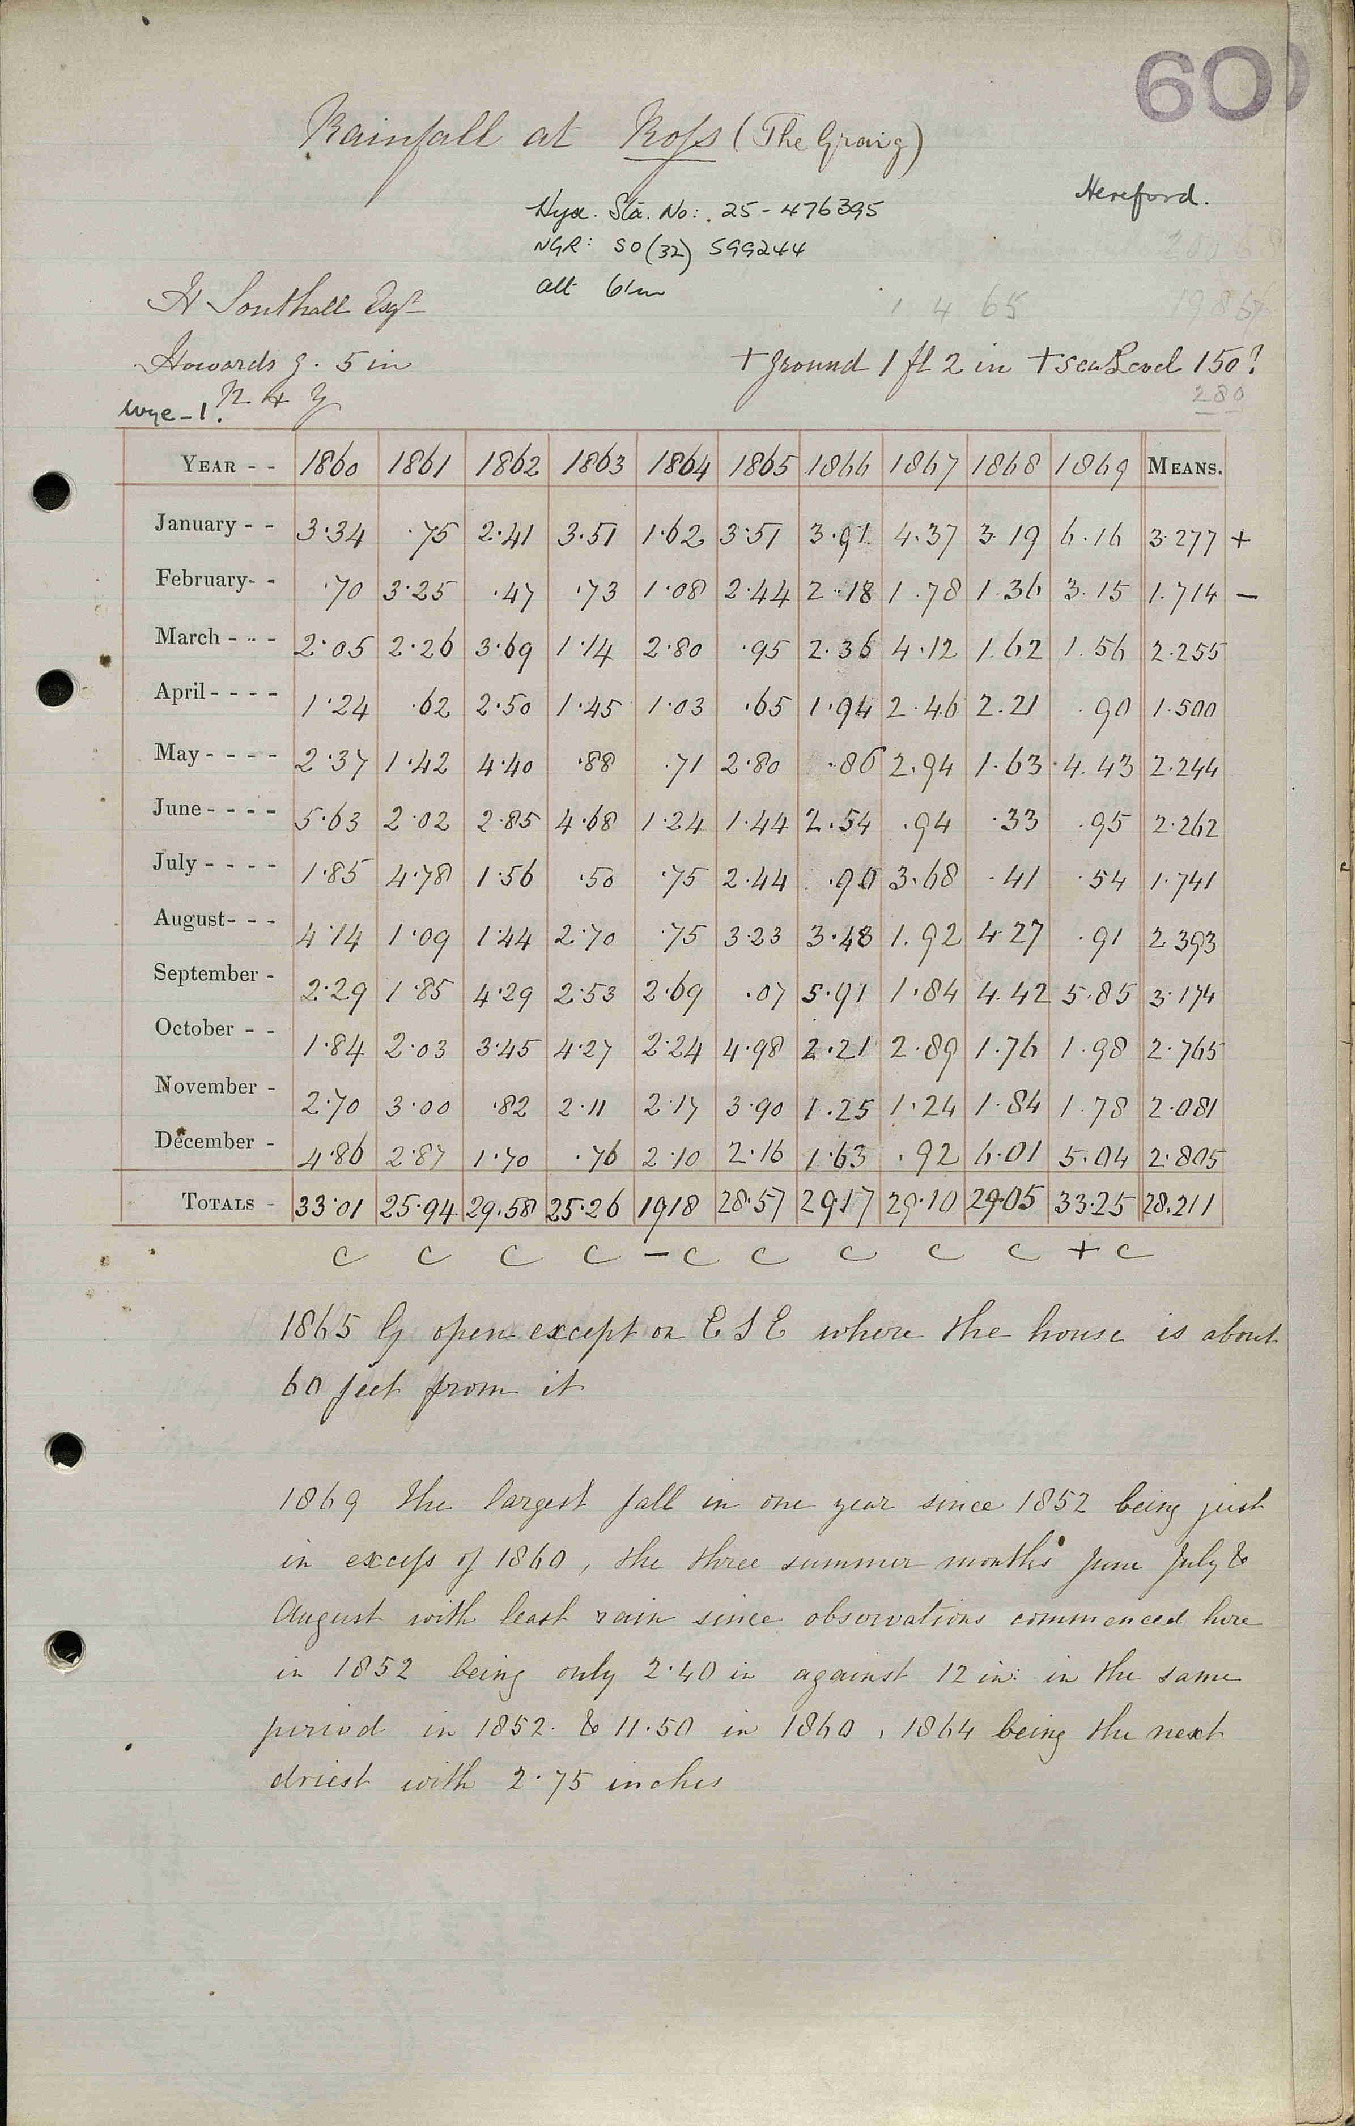 60
Rainfall at Ross (The Graig)
Hereford.
Hyd. Sta. No: 25-476395
NGR: SO (32) 599244
alt 61m
H Southall Esqr
1 4 65
Howards g. 5 in
+ ground 1 ft 2 in + sea Level 150?
280
Wye-1.
YEAR - - 1860 1861 1862 1863 1864 1865 1866 1867 1868 1869 MEANS.
January - - 3·34 ·75 2·41 3·51 1·62 3·51 3·91 4·37 3·19 6·16 3·277 +
February- - ·70 3·25 ·47 ·73 1·08 2·44 2·18 1·78 1·36 3·15 1·714 –
March - - - 2·05 2·26 3·69 1·14 2·80 ·95 2·36 4·12 1·62 1·56 2·255
April - - - - 1·24 ·62 2·50 1·45 1·03 ·65 1·94 2·46 2·21 ·90 1·500
May - - - - 2·37 1·42 4·40 ·88 ·71 2·80 ·86 2·94 1·63 4·43 2·244
June - - - - 5·63 2·02 2·85 4·68 1·24 1·44 2·54 ·94 ·33 ·95 2·262
July - - - - 1·85 4·78 1·56 ·50 ·75 2·44 ·90 3·68 ·41 ·54 1·741
August- - - 4·14 1·09 1·44 2·70 ·75 3·23 3·48 1·92 4·27 ·91 2·393
September - 2·29 1·85 4·29 2·53 2·69 ·07 5·91 1·84 4·42 5·85 3·174
October - - 1·84 2·03 3·45 4·27 2·24 4·98 2·21 2·89 1·76 1·98 2·765
November - 2·70 3·00 ·82 2·11 2·17 3·90 1·25 1·24 1·84 1·78 2·081
December - 4·86 2·87 1·70 ·76 2·10 2·16 1·63 ·92 6·01 5·04 2·805
TOTALS - 33·01 25·94 29·58 25·26 19·18 28·57 29·17 29·10 29·05 33·25 28·211
C C C C – C C C C C + C
1865 G open except on E S E where the house is about
60 feet from it
1869 The largest fall in one year since 1852 being just
in excess of 1860, the three summer months June July &
August with least rain since observations commenced here
in 1852 being only 2·40 in against 12 in: in the same
period in 1852 & 11·50 in 1860, 1864 being the next
driest with 2·75 inches